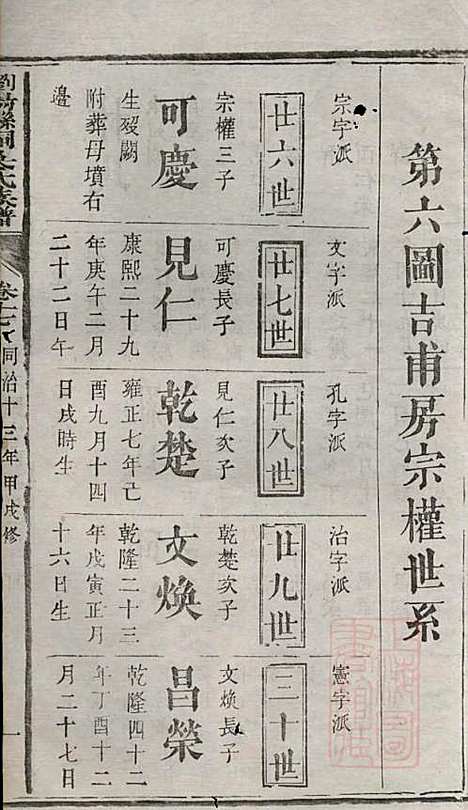 第六圖吉甫房宗權世系
宗字派
廿六世
宗權三子
可慶
生歿闕
附葬母墳右
邊
文字派
廿七世
可慶長子
見仁
康熙二十九
年庚午二月
二十二日午
孔字派
廿八世
見仁次子
乾楚
雍正七年己
酉九月十四
日戌時生
治字派
廿九世
乾楚次子
文煥
乾隆二十三
年戊寅正月
十六日生
憲字派
三十世
文煥長子
昌榮
乾隆四十二
年丁酉十二
月二十七日
氏族譜
同治十三年甲戌修
一